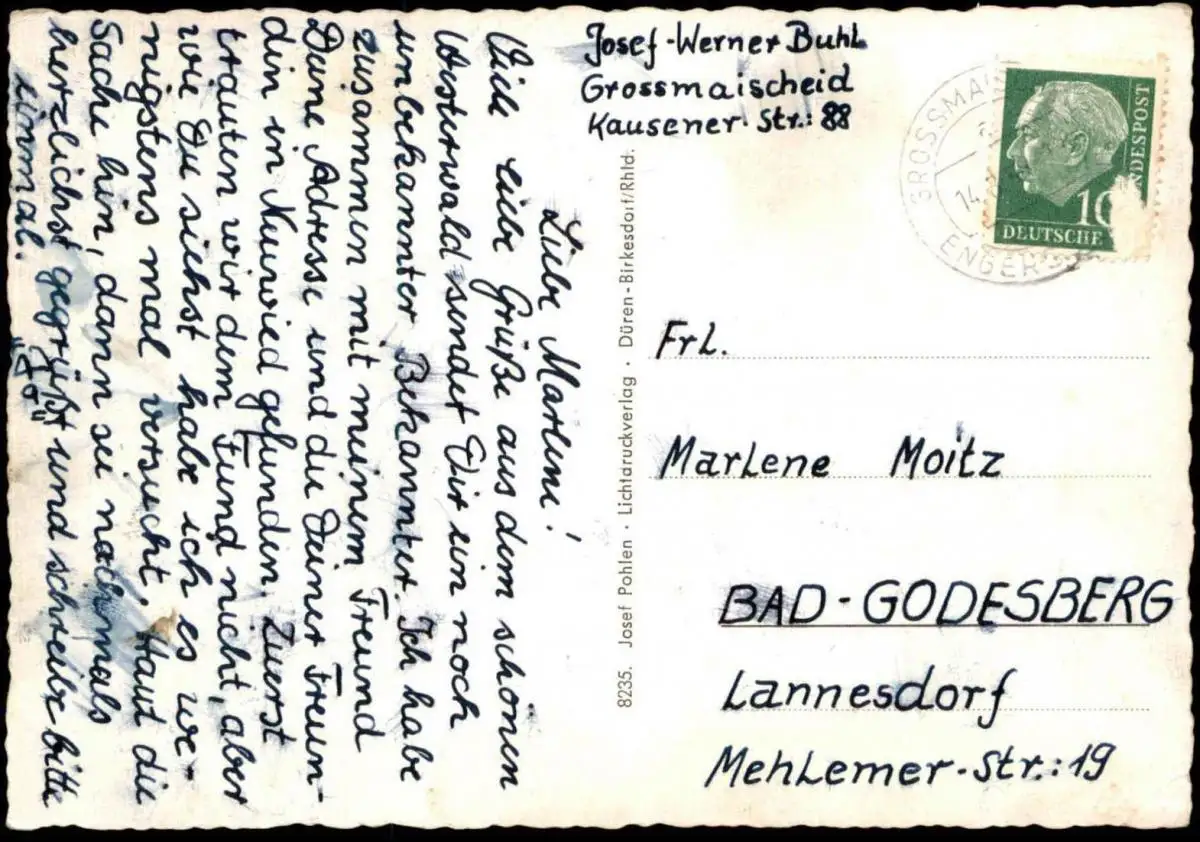 Josef-Werner Buhl
Grossmaischeid
Kausener-Str.: 88
GROSSMAI
14.
ENGERS
NDESPOST
10
DEUTSCHE
Liebe Marlene!
Viele liebe Grüße aus dem schönen
Westerwald sendet Dir ein noch
unbekannter Bekannter. Ich habe
zusammen mit meinem Freund
Deine Adresse und die Deiner Freun-
din in Neuwied gefunden. Zuerst
trauten wir dem Fund nicht, aber
wie Du siehst habe ich es we-
nigstens mal versucht. Haut die
Sache hin, dann sei nachmals
herzlichst gegrüßt und schreibe bitte
einmal.
"Jo"
8235. Josef Pohlen · Lichtdruckverlag · Düren-Birkesdorf/Rhld.
Frl.
Marlene Moitz
BAD-GODESBERG
Lannesdorf
Mehlemer-Str.: 19